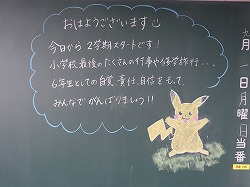 おはようございます
今日から2学期スタートです!
小学校最後のたくさんの行事や修学旅行…。
6年生としての自覚、責任、自信をもって
みんなでがんばりましょう!!
九月一日月曜日
当番